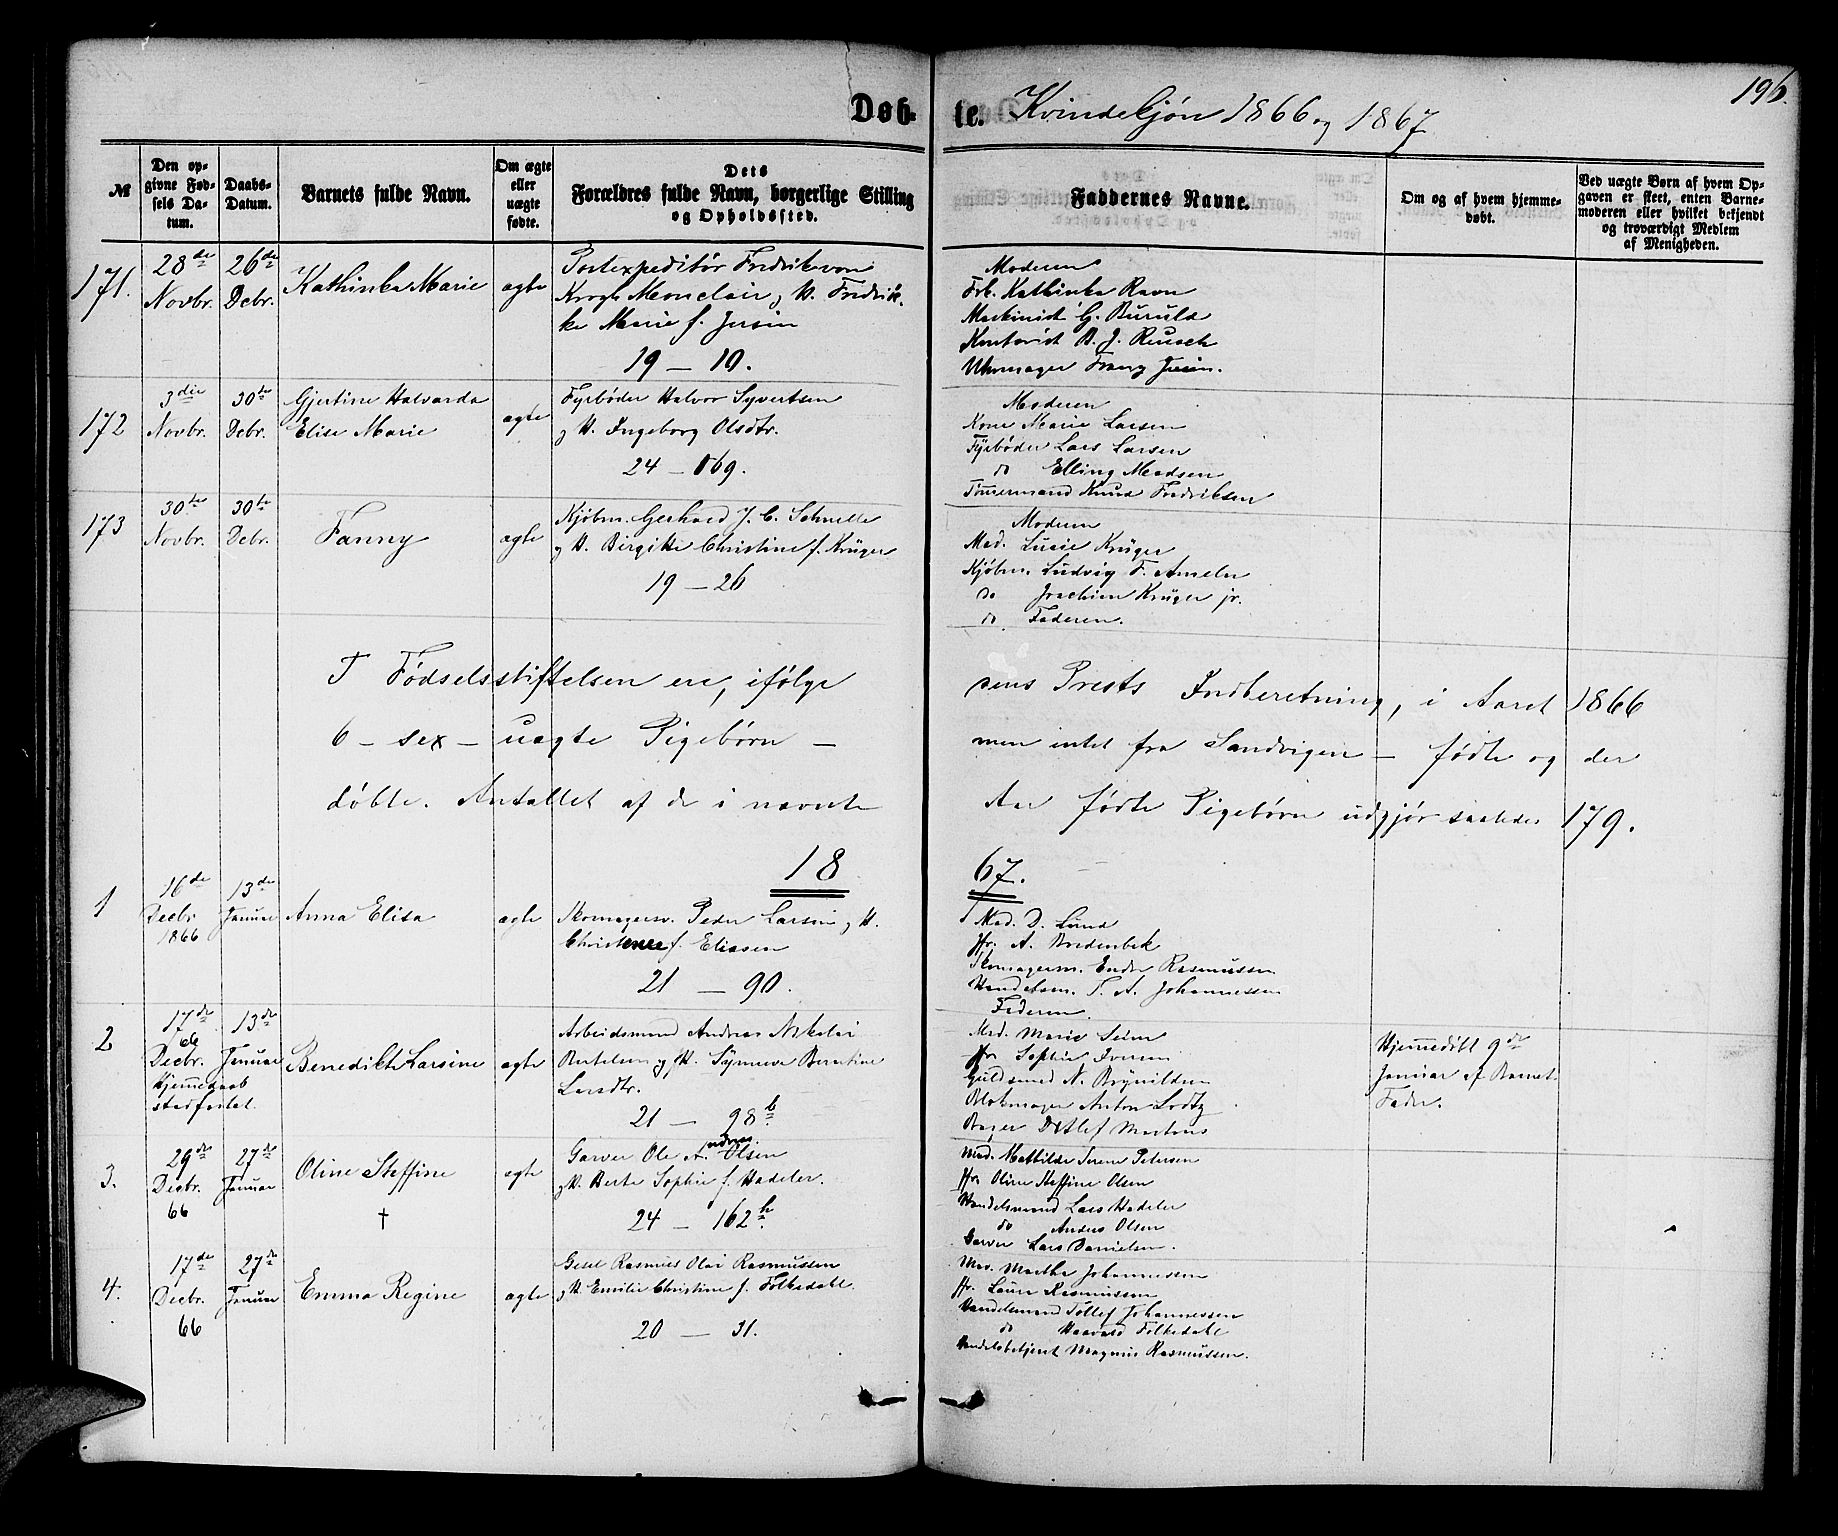 Døb-
te. Kvindekjøn 1866 og 1867
196.
№
Den op-
givne Fød-
sels Da-
tum.
Daabs-
Datum.
Barnets fulde Navn.
Om ægte
eller
uægte
fødte.
Dets
Forældres fulde Navn, borgerlige Stilling
og Opholdssted.
Faddernes Navne.
Om og af hvem hjemme-
døbt.
Ved uægte Børn af hvem Op-
gaven er skeet, enten Barne-
moderen eller hvilket bekjendt
og troværdigt Medlem
af Menigheden.
171.
28de
Novbr.
26de
Debr.
Kathinka Marie
ægte
Postexpeditør Fredrik von
Krogh Monclair og H. Fredrik-
ke Marie f. Jersin
19 — 10.
Moderen
Frk. Kathinka Ravn
Maskinist G. Buruld
Kontorist B. J. Reusch
Uhrmager Franz Jersin.
172
3die
Novbr.
30te
Debr.
Gjertine Halvarda
Elise Marie
ægte
Fyrbøder Halvor Syvertsen
og H. Ingeborg Olsdtr.
24 — 169.
Moderen
Kone Marie Larsen
Fyrbøder Lars Larsen
do Elling Madsen
Tømmermand Knud Fredriksen
173
30te
Novbr.
30te
Debr.
Fanny
ægte
Kjøbm. Gerhard J. C. Schnelle
og H. Birgitte Christine f. Krüger
19 — 26
Moderen
Mad. Lucie Krüger
Kjøbm. Ludvig F. Ameln
do Joachim Krüger jr.
do Faderen.
I Fødselsstiftelsen ere, ifølge
dens Prests Indberetning, i Aaret 1866
6 — sex — uægte Pigebørn —
men intet fra Sandvigen — fødte og der
døbte. Antallet af de i nævnte
Aar fødte Pigebørn udgjør saaledes 179.
18
67.
1
16de
Decbr
1866
13de
Januar
Anna Elisa
ægte
Skomagersv. Peder Larsen og H.
Christence f. Eliasen
21 — 90.
Mad. D. Lund
Jfr. A. Bredenbek
Skomagerm. Endre Rasmussen
Handelsm. T. A. Johannessen
Faderen
2
17de
66
Decbr.
Hjemmedaab
stadfæstet.
13de
Januar
Benedikte Larsine
ægte
Arbeidsmand Andreas Nikolai
Bertelsen og H. Synneve Berntine
Larsdtr.
21 — 98b.
Mad. Marie Seim
Jfr. Sophie Iversen
Guldsmed N. Brynildsen
Blokmager Anton Lodtz
Bager Detlef Martens
Hjemmedøbt 9de
Januar af Barnets
Fader.
3.
29de
Decbr.
66
27de
Januar
Oline Steffine
†
ægte
Garver Ole A. Olsen
ndreas
og H. Berte Sophie f. Hadeler.
24 — 162b.
Mad. Mathilde Serene Petersen
Jfr. Oline Steffine Olsen
Handelsmand Lars Hadeler
do Anders Olsen
Garver Lars Danielsen.
4.
17de
Decbr.
66
27de
Januar
Emma Regine
ægte
Gesel Rasmus Olai Rasmussen
og H. Emilie Christine f. Folkedahl.
20 — 31.
Mad. Marthe Johannessen
Jfr. Laura Rasmussen
Handelsmand Tollef Johannessen
do Haavard Folkedahl
Handelsbetjent Magnus Rasmussen.